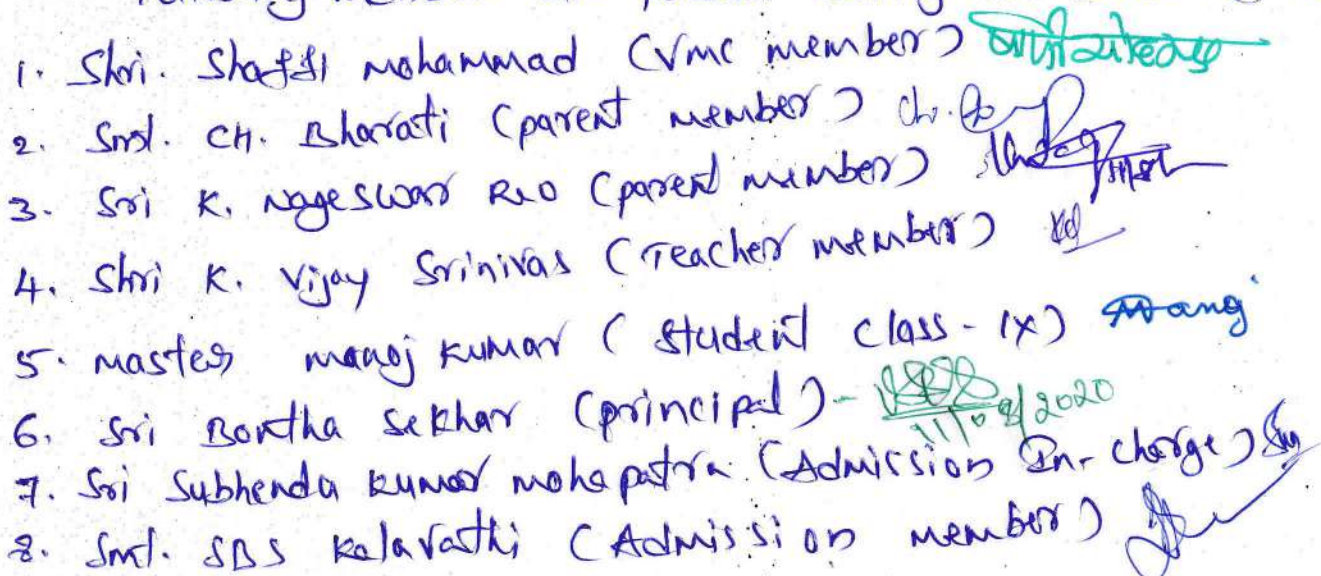 1. Shri. Shaffi Mohammad (VMC member)
2. Smt. CH. Bharati (parent member) Ch.
3. Sri K. Nageswar Rao (parent member)
4. Shri K. Vijay Srinivas (Teacher member)
5. Master Manoj Kumar (Student Class - IX)
6. Sri Bontha Sekhar (principal) -
7. Sri Subhendu Kumar Mohapatra (Admission In-charge)
8. Smt. SBS Kalavathi (Admission member)